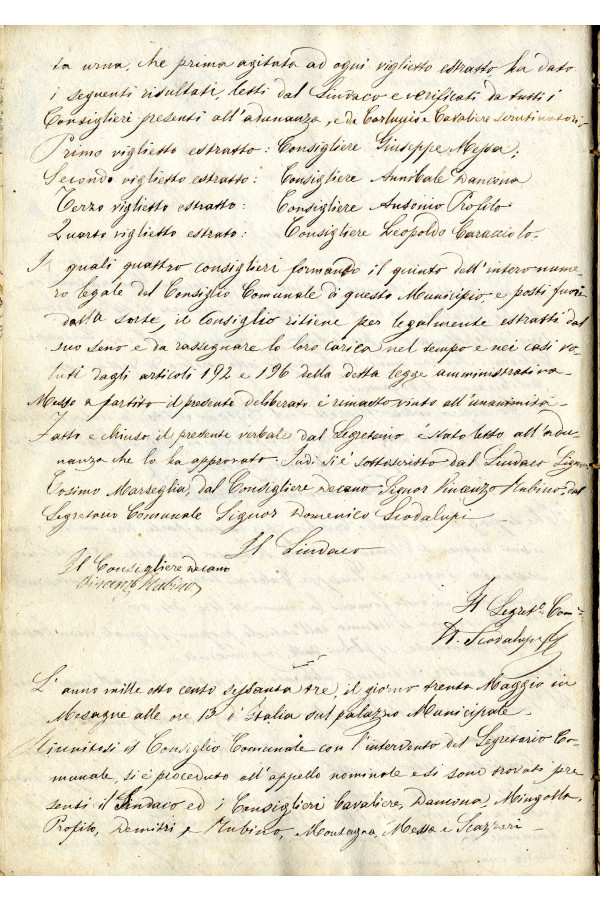 ta urna, che prima agitata ad ogni viglietto estratto ha dato
i seguenti risultati, letti dal Sindaco e verificati da tutti i
Consiglieri presenti all'adunanza, e da Carluccio e Cavaliere scrutinatori,
Primo viglietto estratto: Consigliere Giuseppe Messa;
Secondo viglietto estratto: Consigliere Annibale Dancona
Terzo viglietto estratto: Consigliere Antonio Profilo
Quarto viglietto estrato: Consigliere Leopoldo Caracciolo-
I quali quattro consiglieri formando il quinto dell'intero nume
ro legale del Consiglio Comunale di questo Municipio, e posti fuori
dalla sorte, il Consiglio ritiene per legalmente estratti dal
suo seno e da rassegnare la loro carica nel tempo e nei casi vo-
luti dagli articoli 192 e 196 della detta legge amministrativa-
Messo a partito il presente deliberato è rimasto vinto all'unanimità-
Fatto e chiuso il presente verbale dal Segretario è stato letto all'adu-
nanza che lo ha approvato. Indi si è sottoscritto dal Sindaco Signor
Cosimo Marseglia, dal Consigliere decano Signor Vincenzo Rubino, dal
Segretario Comunale Signor Domenico Scodalupi
Il Sindaco
Il Consigliere decano
Vincenzo Rubino
Il Segret.o Com.
D. Scodalupi
L'anno mille otto cento sessanta tre, il giorno trenta Maggio in
Mesagne alle ore 13 d'Italia sul palazzo Municipale-
Riunitosi il Consiglio Comunale con l'intervento del Segretario Co-
munale, si è proceduto all'appello nominale e si sono trovati pre
senti il Sindaco ed i Consiglieri Cavaliere, Dancona, Mingolla,
Profilo, Demitri, e Rubino, Montagna, Messa e Scazzeri-